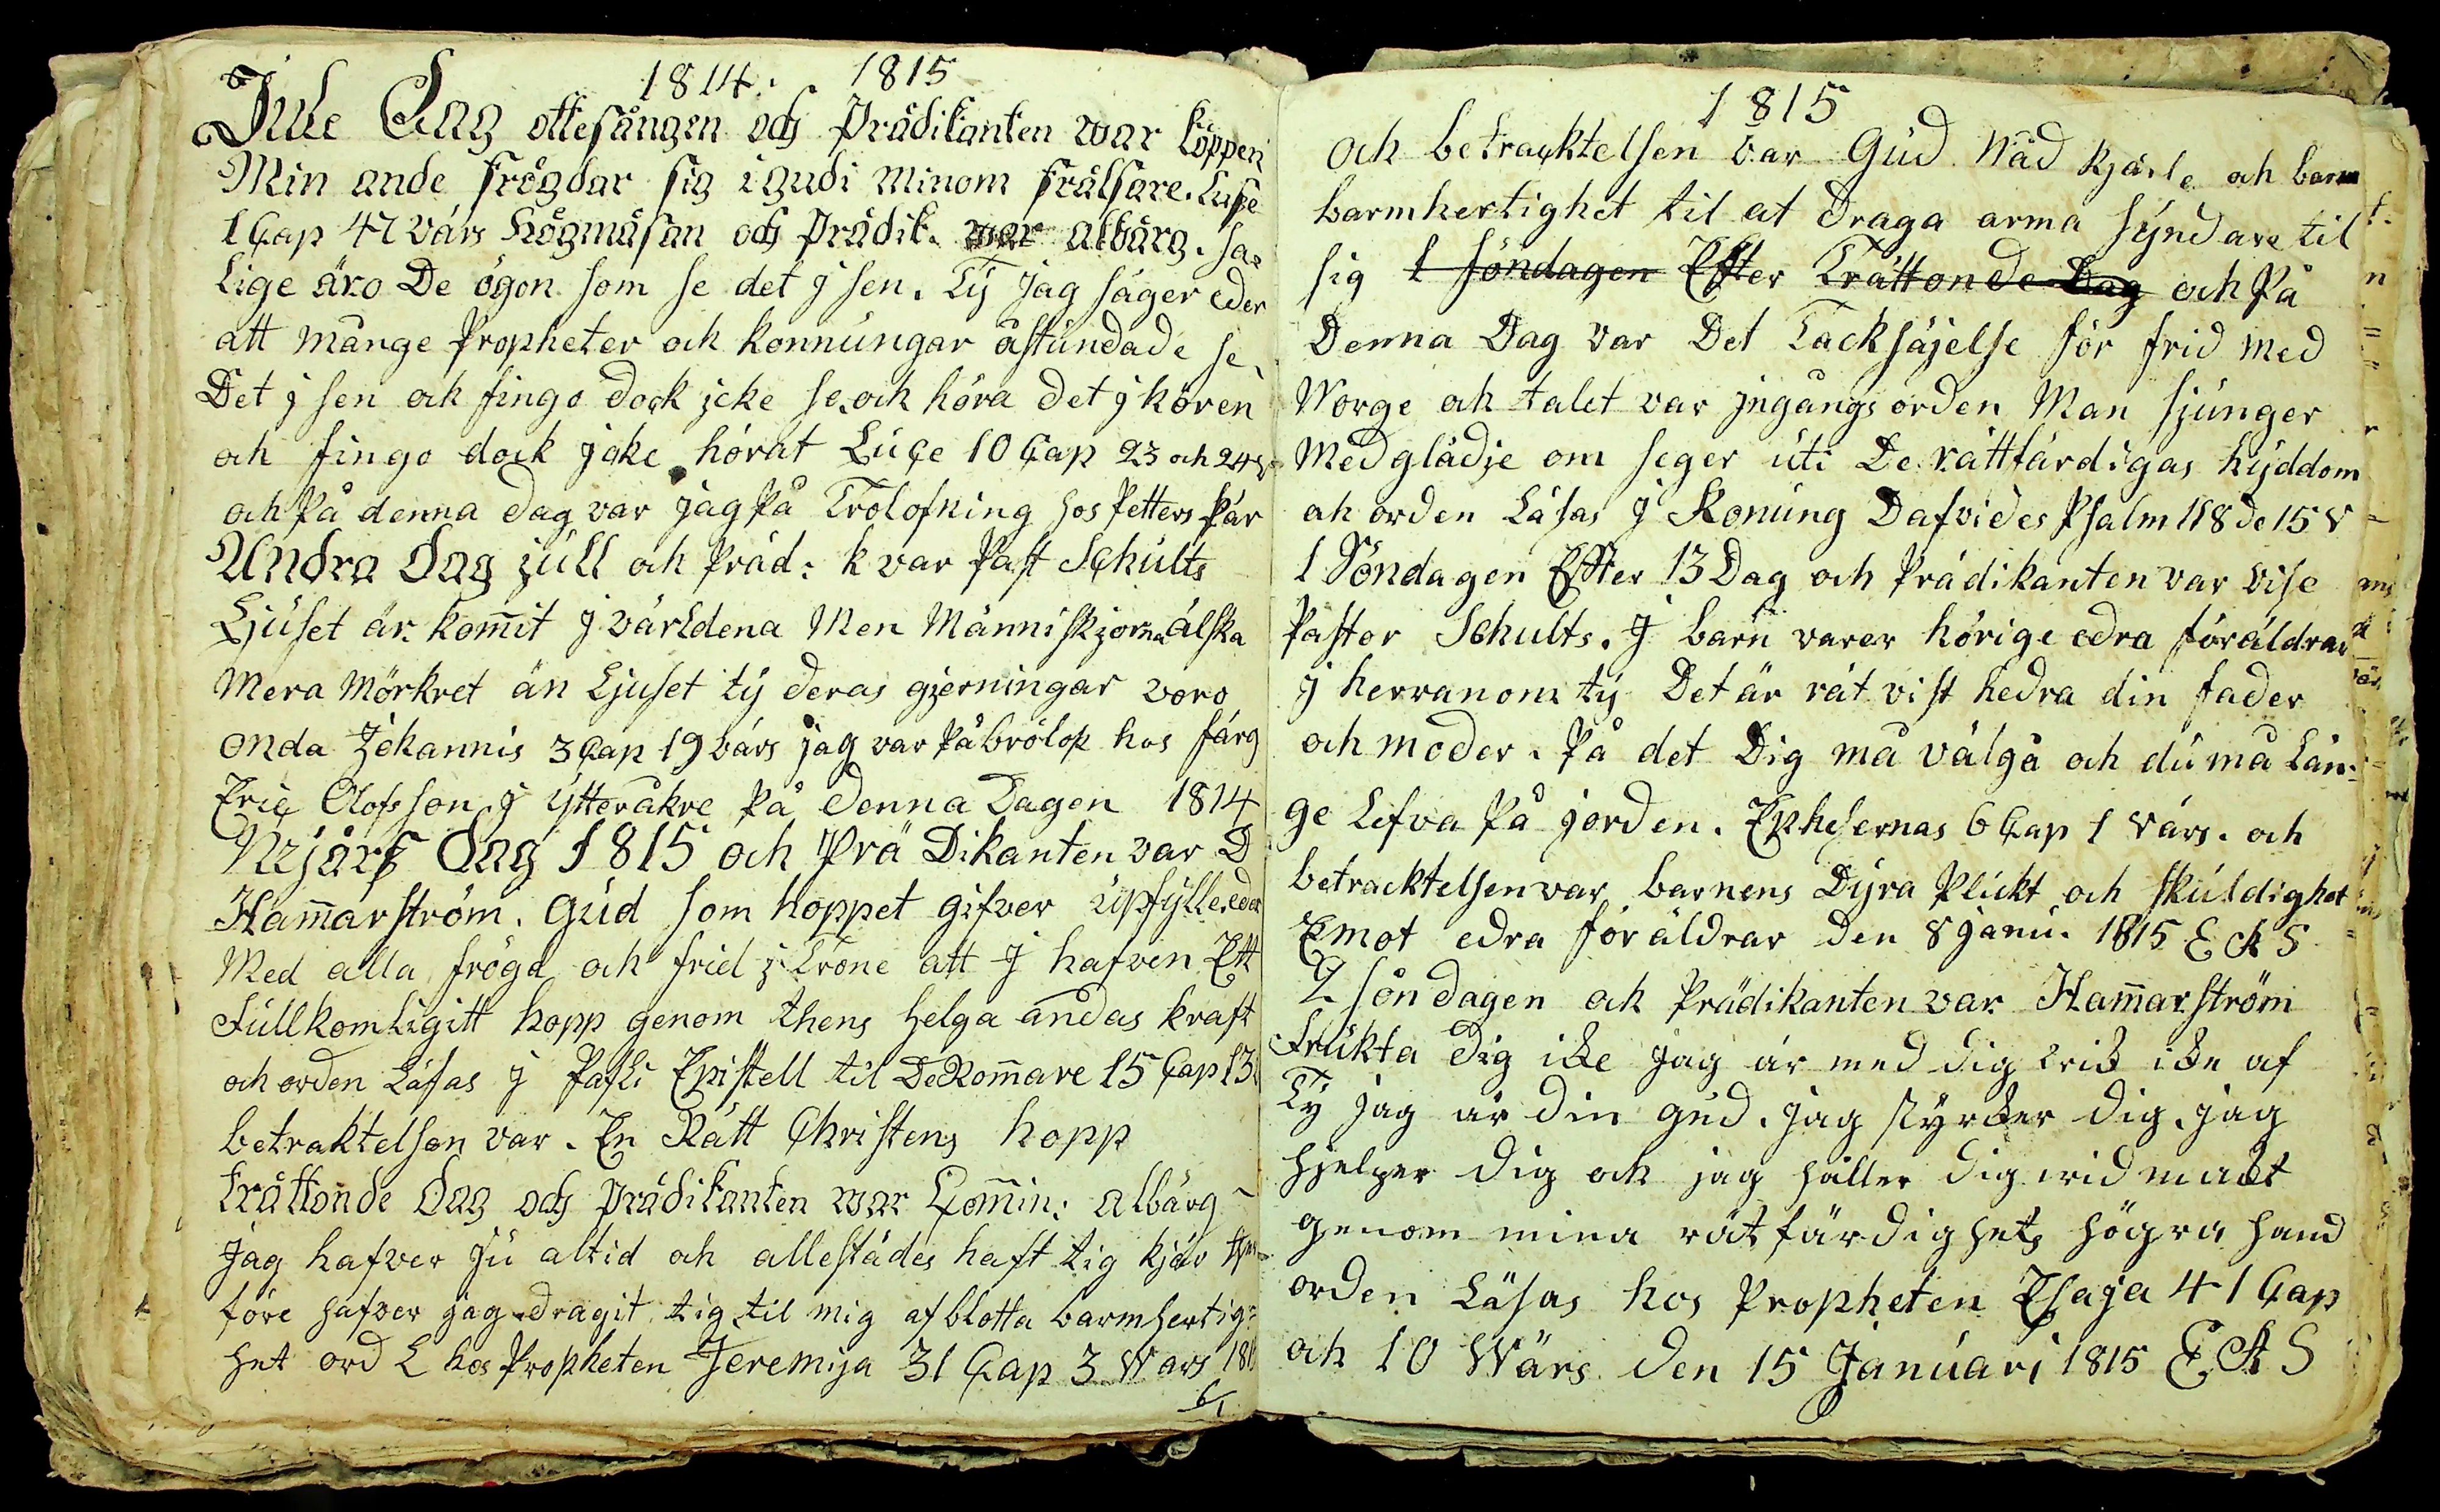 1814. 1815
Jule Dag ottesången och Prädikanten war Köppen
Min ande frögdar sig i gudi minom frälsare. Luce
1 Cap 47 värs Högmäsan och Prädik. war Albärg. Sa=
lige äro De ögon som se det j sen. Ty jag säger eder
att månge Propheter och konnungar åstundade se
Det j sen och fingo dock jcke se. och höra det j hören
och fingo dock jcke hörat Luce 10 Cap 23 och 24 v
och På denna dag var jag På Trolofning hos Petters Pär
Andra Dag jull och Präd: k var Past Schults
Ljuset är kom̄it j världena Men Människjorna älska
Mera Mörkret än Ljuset ty deras gjerningar voro
onda Johannis 3 Cap 19 värs jag var På brölop hos färg
Eric Olofsson j ytteråkre På denna Dagen 1814
Nyjars Dag 1815 och Prä Dikanten var D
Ham̄arström. Gud som hoppet gifver upfylle eder
Med alla frögd och frid j Trone att J hafven Ett
Fullkomligitt hopp genom thens helga andas kraft
och orden Läsas j Pafli Epistell til De Rom̄are 15 Cap 13
betraktelsen var. En Rätt Christens hopp
Trättonde Dag och Prädikanten war Com̄in: Albärg
Jag hafver ju altid och allestädes haft tig kjär ther
före hafver jag dragit tig til mig af blotta barmhertig=
het ord L hos Propheten Jeremija 31 Cap 3 Wars 1815
6/1
1815
och betracktelsen var Gud Nåd kjärle och barm
barmhertighet til at draga arma syndare til
sig 1 Söndagen Efter Trättonde Dag och På
Denna Dag var Det Tacksäjelse för frid med
Norge och talet var jngångs orden Man sjunger
Med glädje om seger uti De rättfärdigas hyddom
och orden Läsas j Konung Dafvides Psalm 118 de 15 v
1 Söndagen Effter 13 Dag och Prädikanten var vise
Pastor Schults. J barn varer hörige edra föräldrar
j herranom ty Det är rät vist hedra din fader
och moder. På det Dig må välgå och du må Län=
ge Lefva På jorden. Ephesernas 6 Cap 1 värs. och
betracktelsen var barnens Dyra Plickt och skuldighet
Emot edra föräldrar den 8 janu. 1815 E A S
2 söndagen och Prädikanten var Ham̄arström
Frukta dig icke jag är med dig vik icke af
Ty jag är din gud. jag styrcker dig. jag
hjelper dig och jag håller dig wid mackt
genom mina rätfärdighets högra hand
orden Läsas hos Propheten Esaja 41 Cap
och 10 Wärs den 15 Januari 1815 E A S